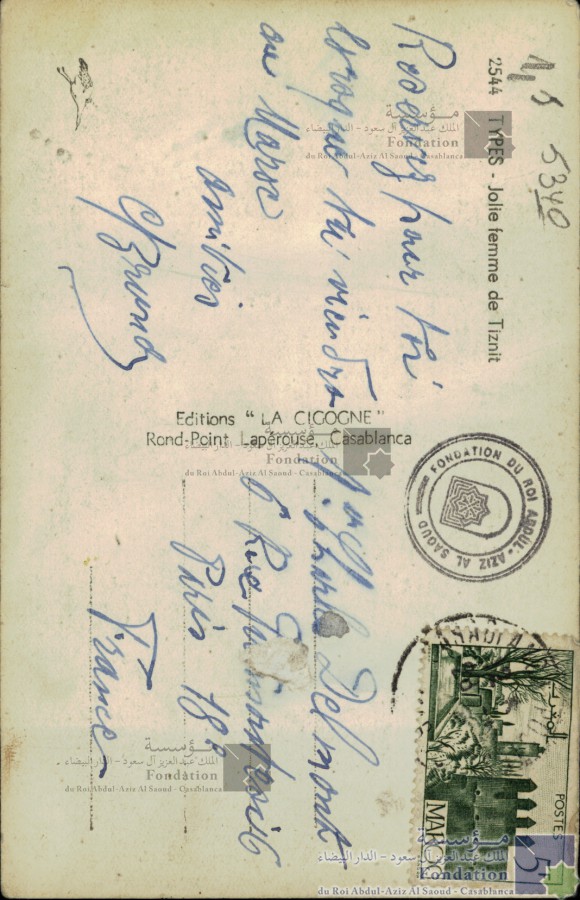 2544 TYPES - Jolie femme de Tiznit
5340
Réservez pour toi
lorsque tu viendra
au Maroc
amitiés
Editions "LA CIGOGNE"
Rond-Point Lapérouse, Casablanca
Delmont
6 Rue
Paris 18e
France
FONDATION DU ROI ABDUL-AZIZ AL SAOUD
المغرب
POSTES
MAROC
5
مؤسسة
الملك عبد العزيز آل سعود - الدار البيضاء
Fondation
du Roi Abdul-Aziz Al Saoud - Casablanca
مؤسسة
الملك عبد العزيز آل سعود - الدار البيضاء
Fondation
du Roi Abdul-Aziz Al Saoud - Casablanca
مؤسسة
الملك عبد العزيز آل سعود - الدار البيضاء
Fondation
du Roi Abdul-Aziz Al Saoud - Casablanca
مؤسسة
الملك عبد العزيز آل سعود - الدار البيضاء
Fondation
du Roi Abdul-Aziz Al Saoud - Casablanca